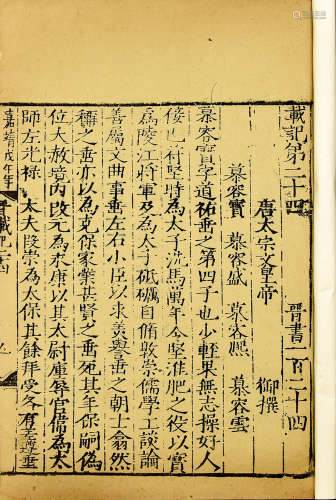 載記第二十四 晉書一百二十四
唐太宗文皇帝 御撰
慕容寶 慕容盛 慕容熙 慕容雲
慕容寶字道祐垂之第四子也少輕果無志操好人
佞己苻堅時為太子洗馬萬年令堅淮肥之役以寶
為陵江將軍及為太子砥礪自脩敦崇儒學工談論
善屬文曲事垂左右小臣以求美譽垂之朝士翕然
稱之垂亦以為克保家業甚賢之垂死其年保嗣偽
位大赦境内改元為永康以其太尉庫辱官偉為太
師左光祿大夫段崇為太保其餘拜受各有差遵垂
嘉靖戊午年 晉載記二十四